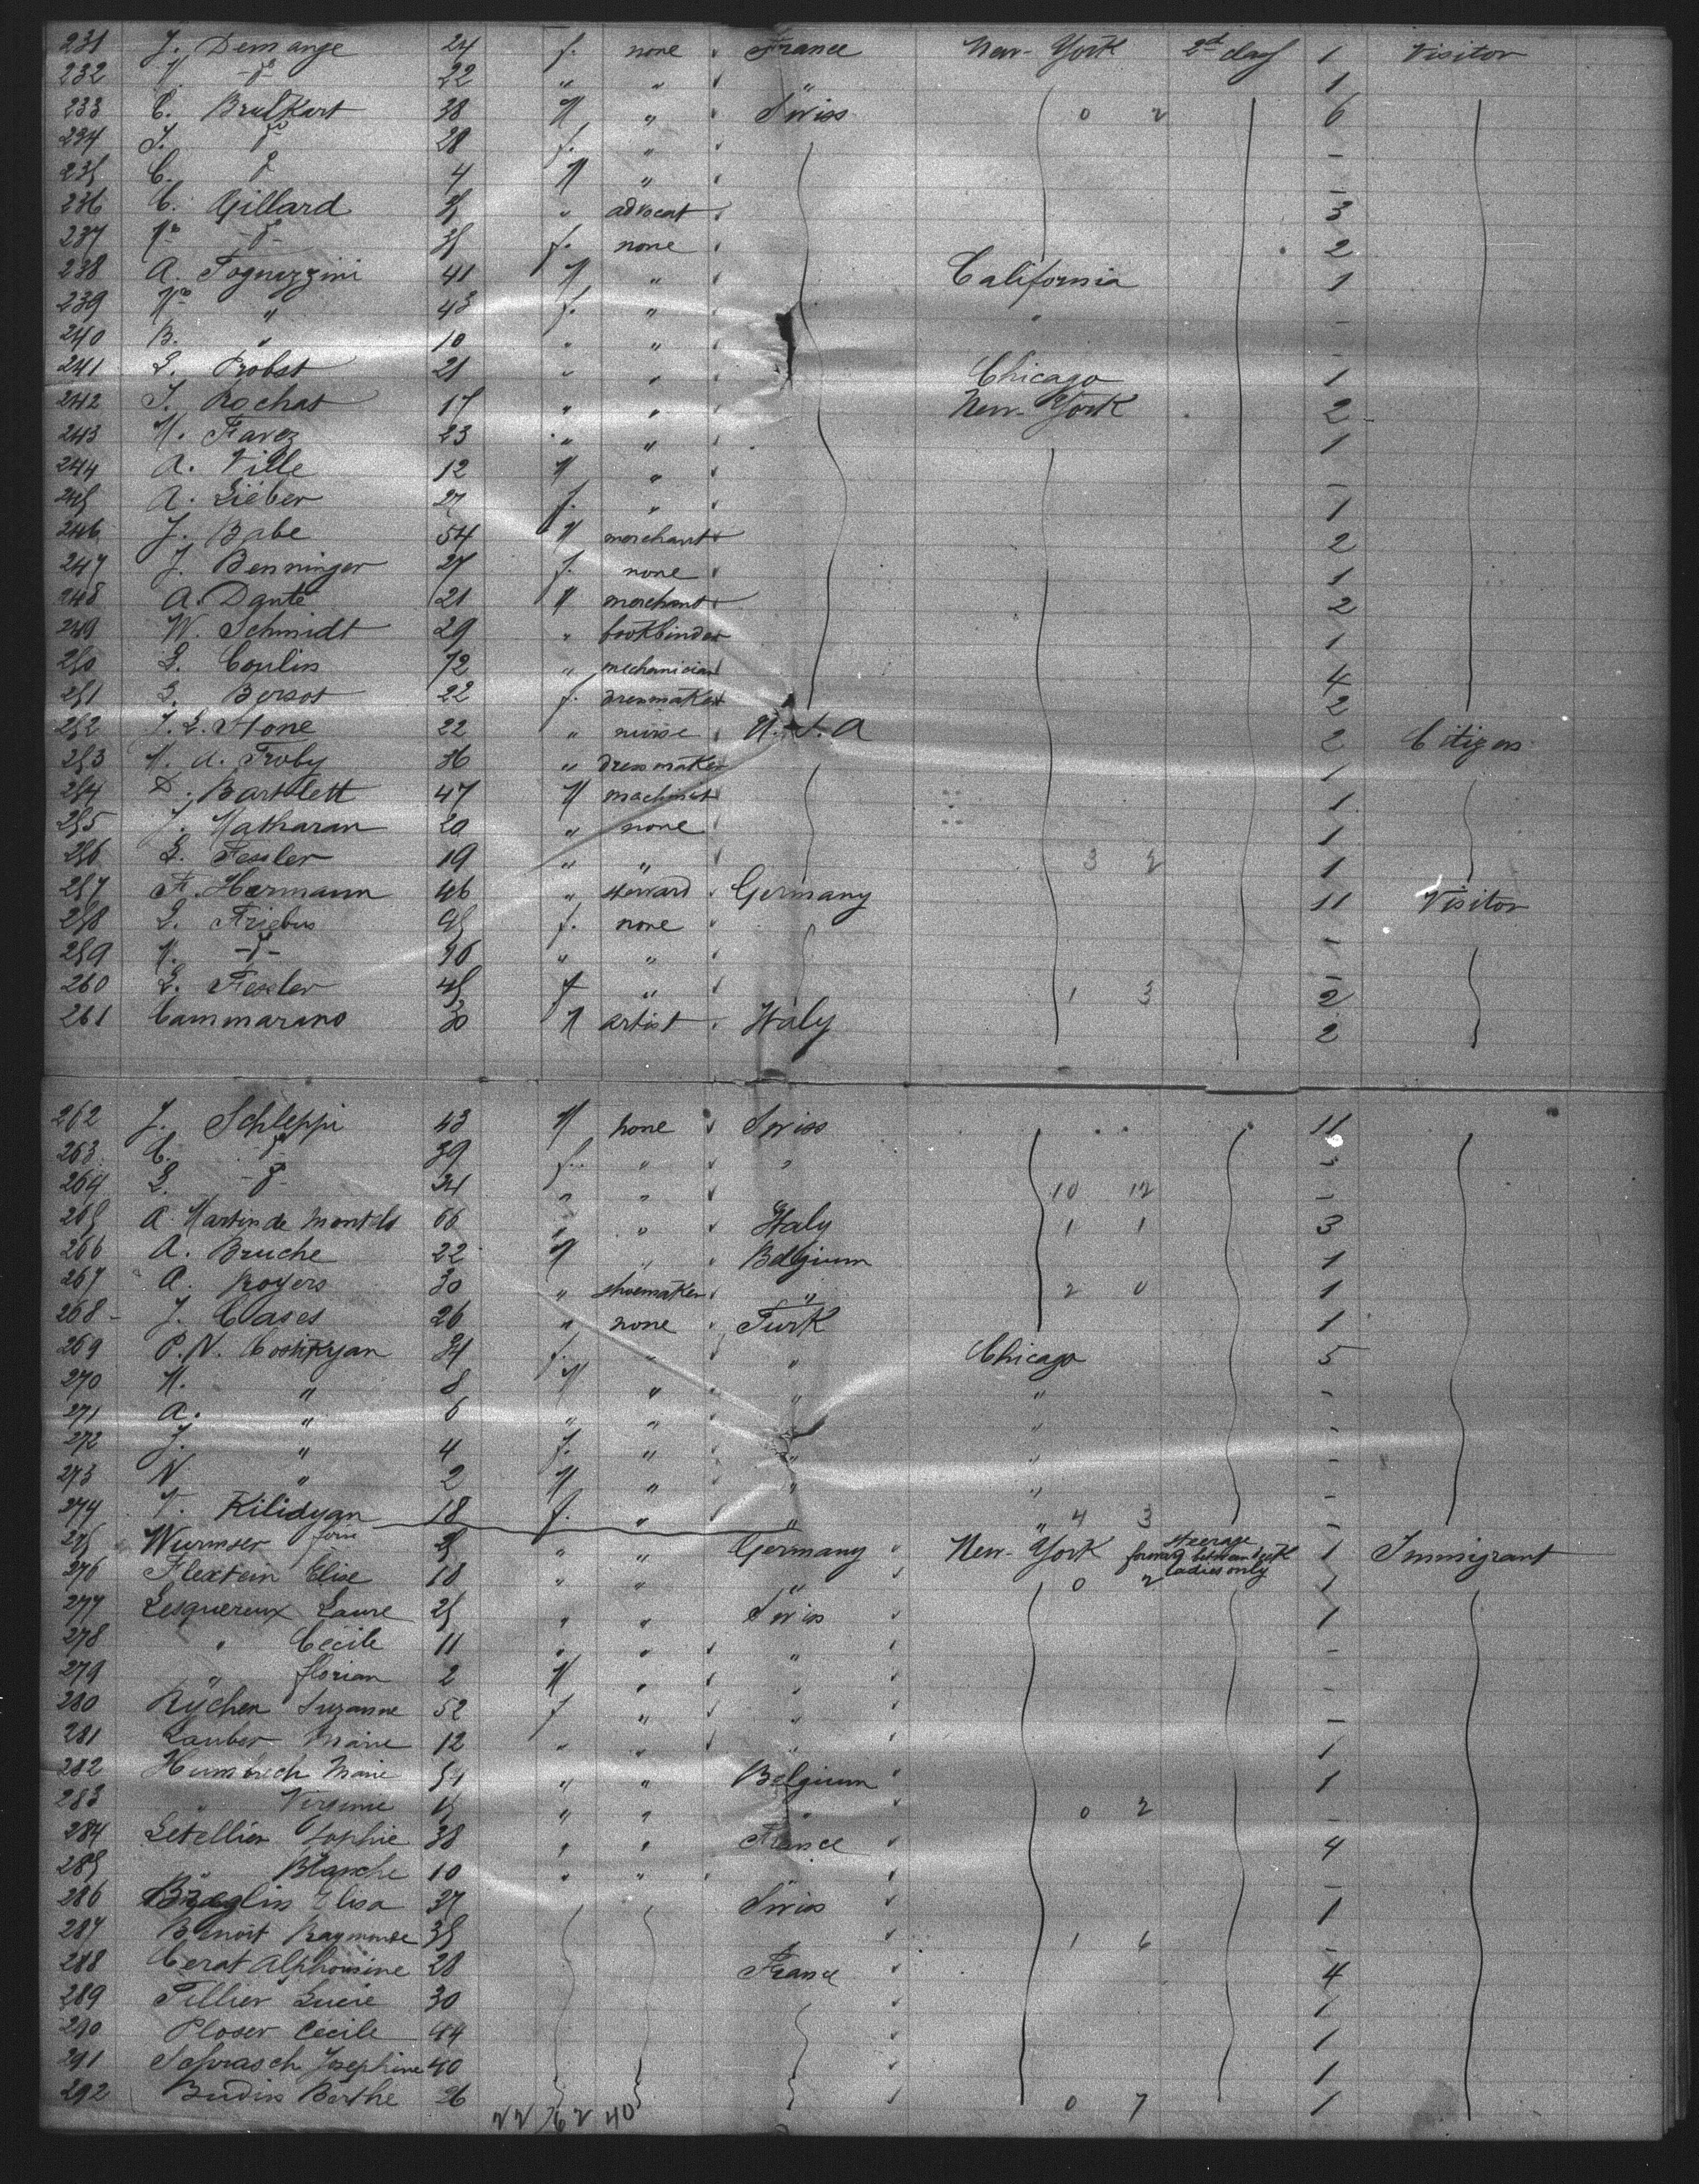 231 J. Demange 24 f. none France New-York 2d class 1 Visitor
232 22 " " " 1
233 C. Brulkart 38 M " Swiss 0 2 6
234 J. do 28 f. " -
235 C. do 4 M " -
236 C. Gillard 35 " advocat 3
237 Me -do- 35 f. none 2
238 A. Tognazzini 41 M " California 1
239 Me " 43 f. " " -
240 B. " 10 " " -
241 L. Probst 21 " " Chicago 1
242 J. Rochat 17 " " New-York 2
243 M. Favez 23 " " 1
244 A. Ville 12 M " -
245 A. Lieber 27 f. " 1
246 J. Babe 54 M merchant 2
247 J. Benninger 27 f. none 1
248 A. Dante 21 M merchant 2
249 W. Schmidt 29 " bookbinder 1
250 L. Coulin 72 " mechanician 4
251 L. Bersot 22 f. dressmaker 2
252 J. L. Stone 22 " nurse U.S.A 2 Citizen
253 M. A. Troby 36 " dressmaker 1
254 D. Bartlett 47 M machinist 1
255 J. Matharan 20 " none 1
256 L. Fessler 19 " " 3 2 1
257 F. Hermann 46 " steward Germany 11 Visitor
258 L. Friebus 45 f. none -
259 M. -do- 16 " " -
260 L. Fessler 45 f " 1 3 2
261 Cammarano 30 M artist Italy 2
262 J. Schleppi 43 M none Swiss 11
263 C. do 39 f. " " -
264 L. -do- 34 " " 10 12 -
265 A. Martin de Montls 66 " " Italy 1 1 3
266 A. Bruche 22 M " Belgium 1
267 A. Royers 30 " shoemaker " 2 0 1
268 - J. Cases 26 " none Turk 1
269 P.N. Costikyan 34 f. " " Chicago 5
270 M. " 8 M " " " -
271 A. " 6 " " " -
272 J. " 4 f. " " " -
273 N " 2 M " " " -
274 T. Kilidyan 18 f. " " " 4 3 -
275 Wurmser 25 " " Germany New-York steerage forward between deck ladies only 1 Immigrant
276 Flextein Elise 18 " " " 0 2 1
277 Lesquereux Laure 25 " " Swiss 1
278 " Cécile 11 " " " -
279 " florian 2 M " " -
280 Rychen Suzanne 52 f " " -
281 Lauber Marie 12 " " " 1
282 Humbrech Marie 51 " " Belgium 1
283 " Virginie 15 " " " 0 2 -
284 Letellier Sophie 38 " " France 4
285 " Blanche 10 " " " -
286 Braeglin Elisa 37 Swiss 1
287 Benoit Raymonde 35 1 6 -
288 Cerat Alphonsine 28 France 4
289 Tillier Lucie 30 1
290 Ploser Cecile 44 1
291 Schrasch Josephine 40 1
292 Budin Berthe 26 0 7 1
22 62 40